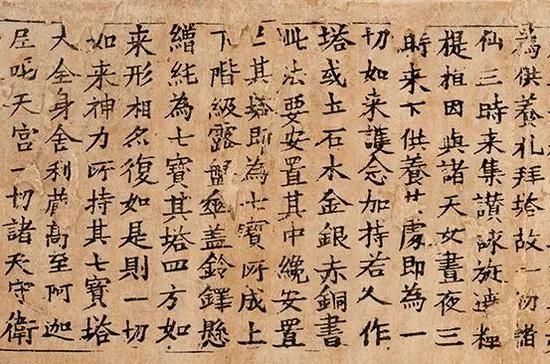 為供養礼拜塔故一切諸
仙三時来集讃詠旋遶釋
提桓因與諸天女晝夜三
時来下供養其處即為一
切如来護念加持若人作
塔或土石木金銀赤銅書
此法要安置其中纔安置
已其塔即為七寶所成上
下階級露盤傘盖鈴鐸懸
繒純為七寶其塔四方如
来形相亦復如是則一切
如来神力所持其七寶塔
大全身舍利藏高至阿迦
尼吒天宮一切諸天守衛